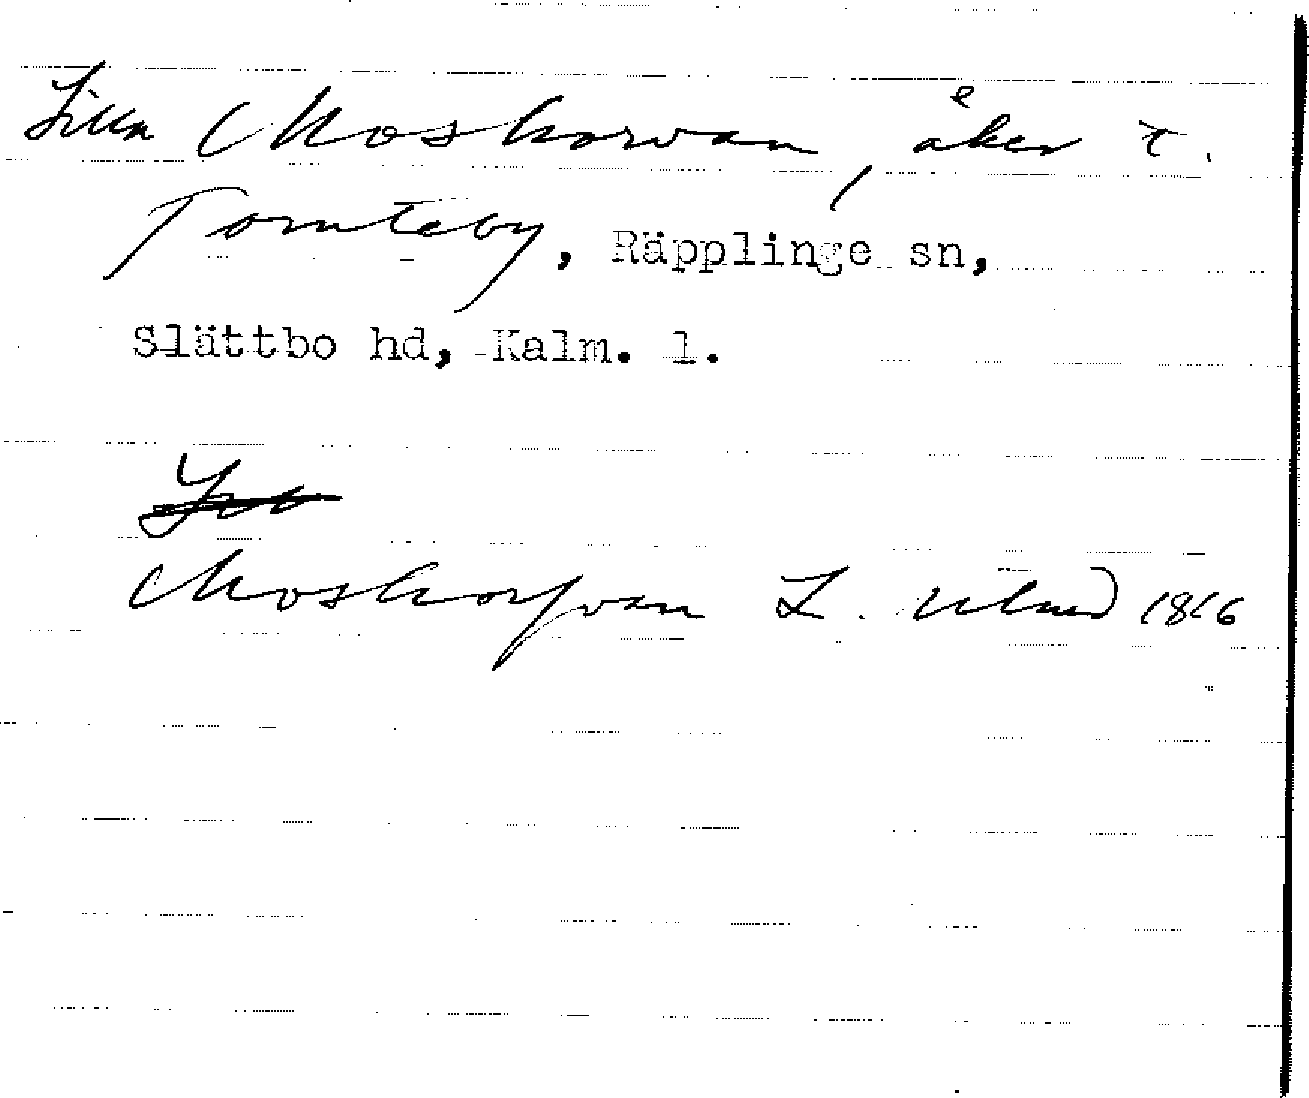 Lilla Moskorvan, åker t.
Tomteby, Räpplinge sn,
Slättbo hd, Kalm. l.
Moskorfvan L. 1816